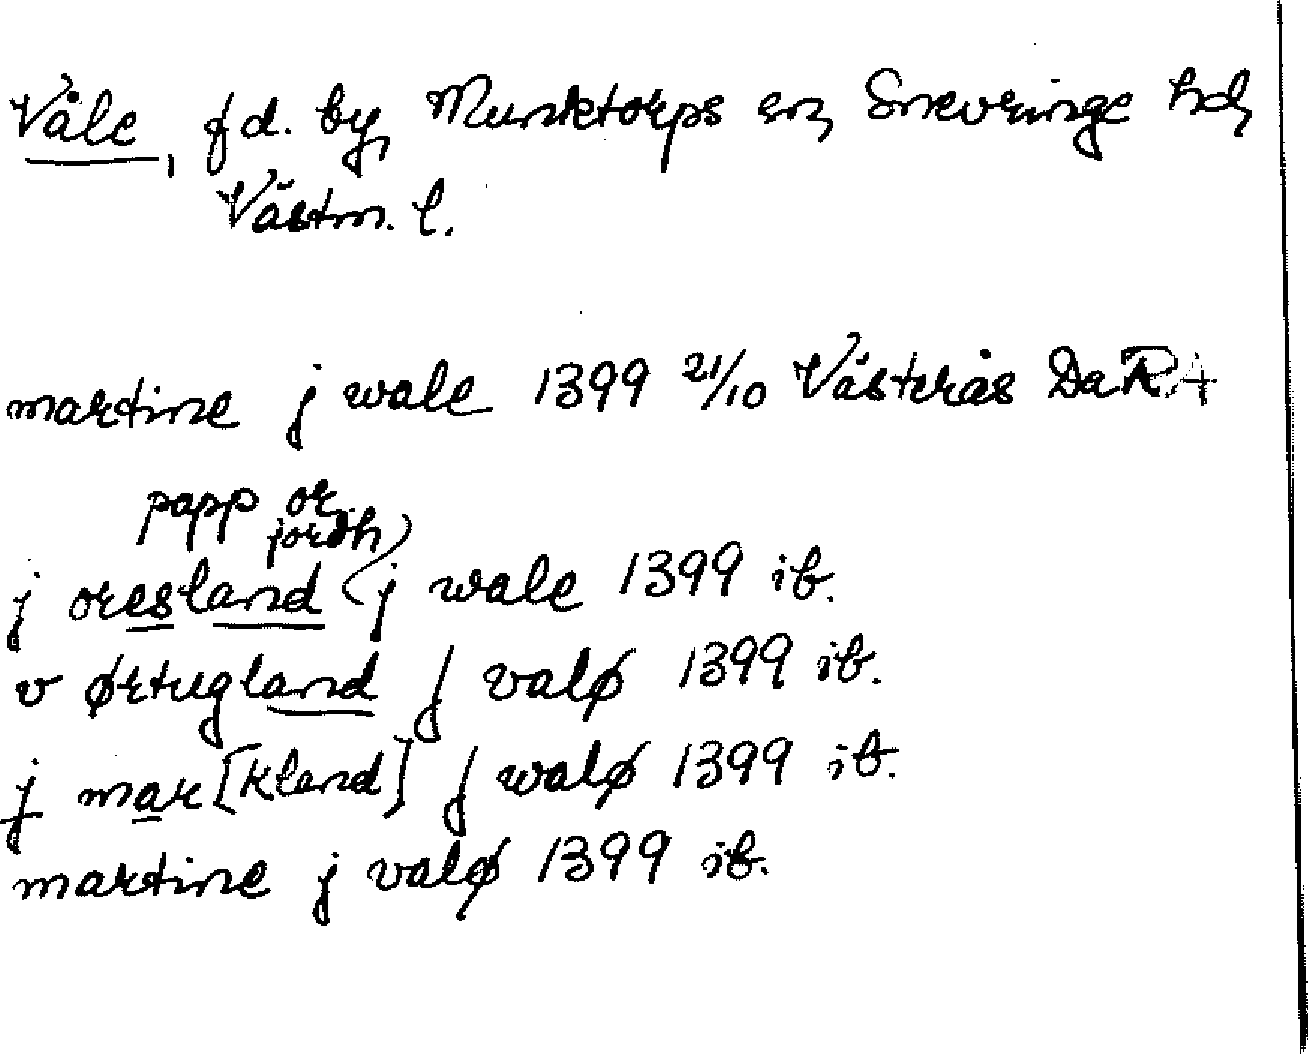 Våle, f d. by, Munktorps sn, Snevringe hd,
Västm. l.
martine j wale 1399 21/10 Västerås DaRA
papp or
jordh
j oresland j wale 1399 ib.
v ørtugland j valø 1399 ib.
j mar[kland] j walø 1399 ib.
martine j valø 1399 ib.